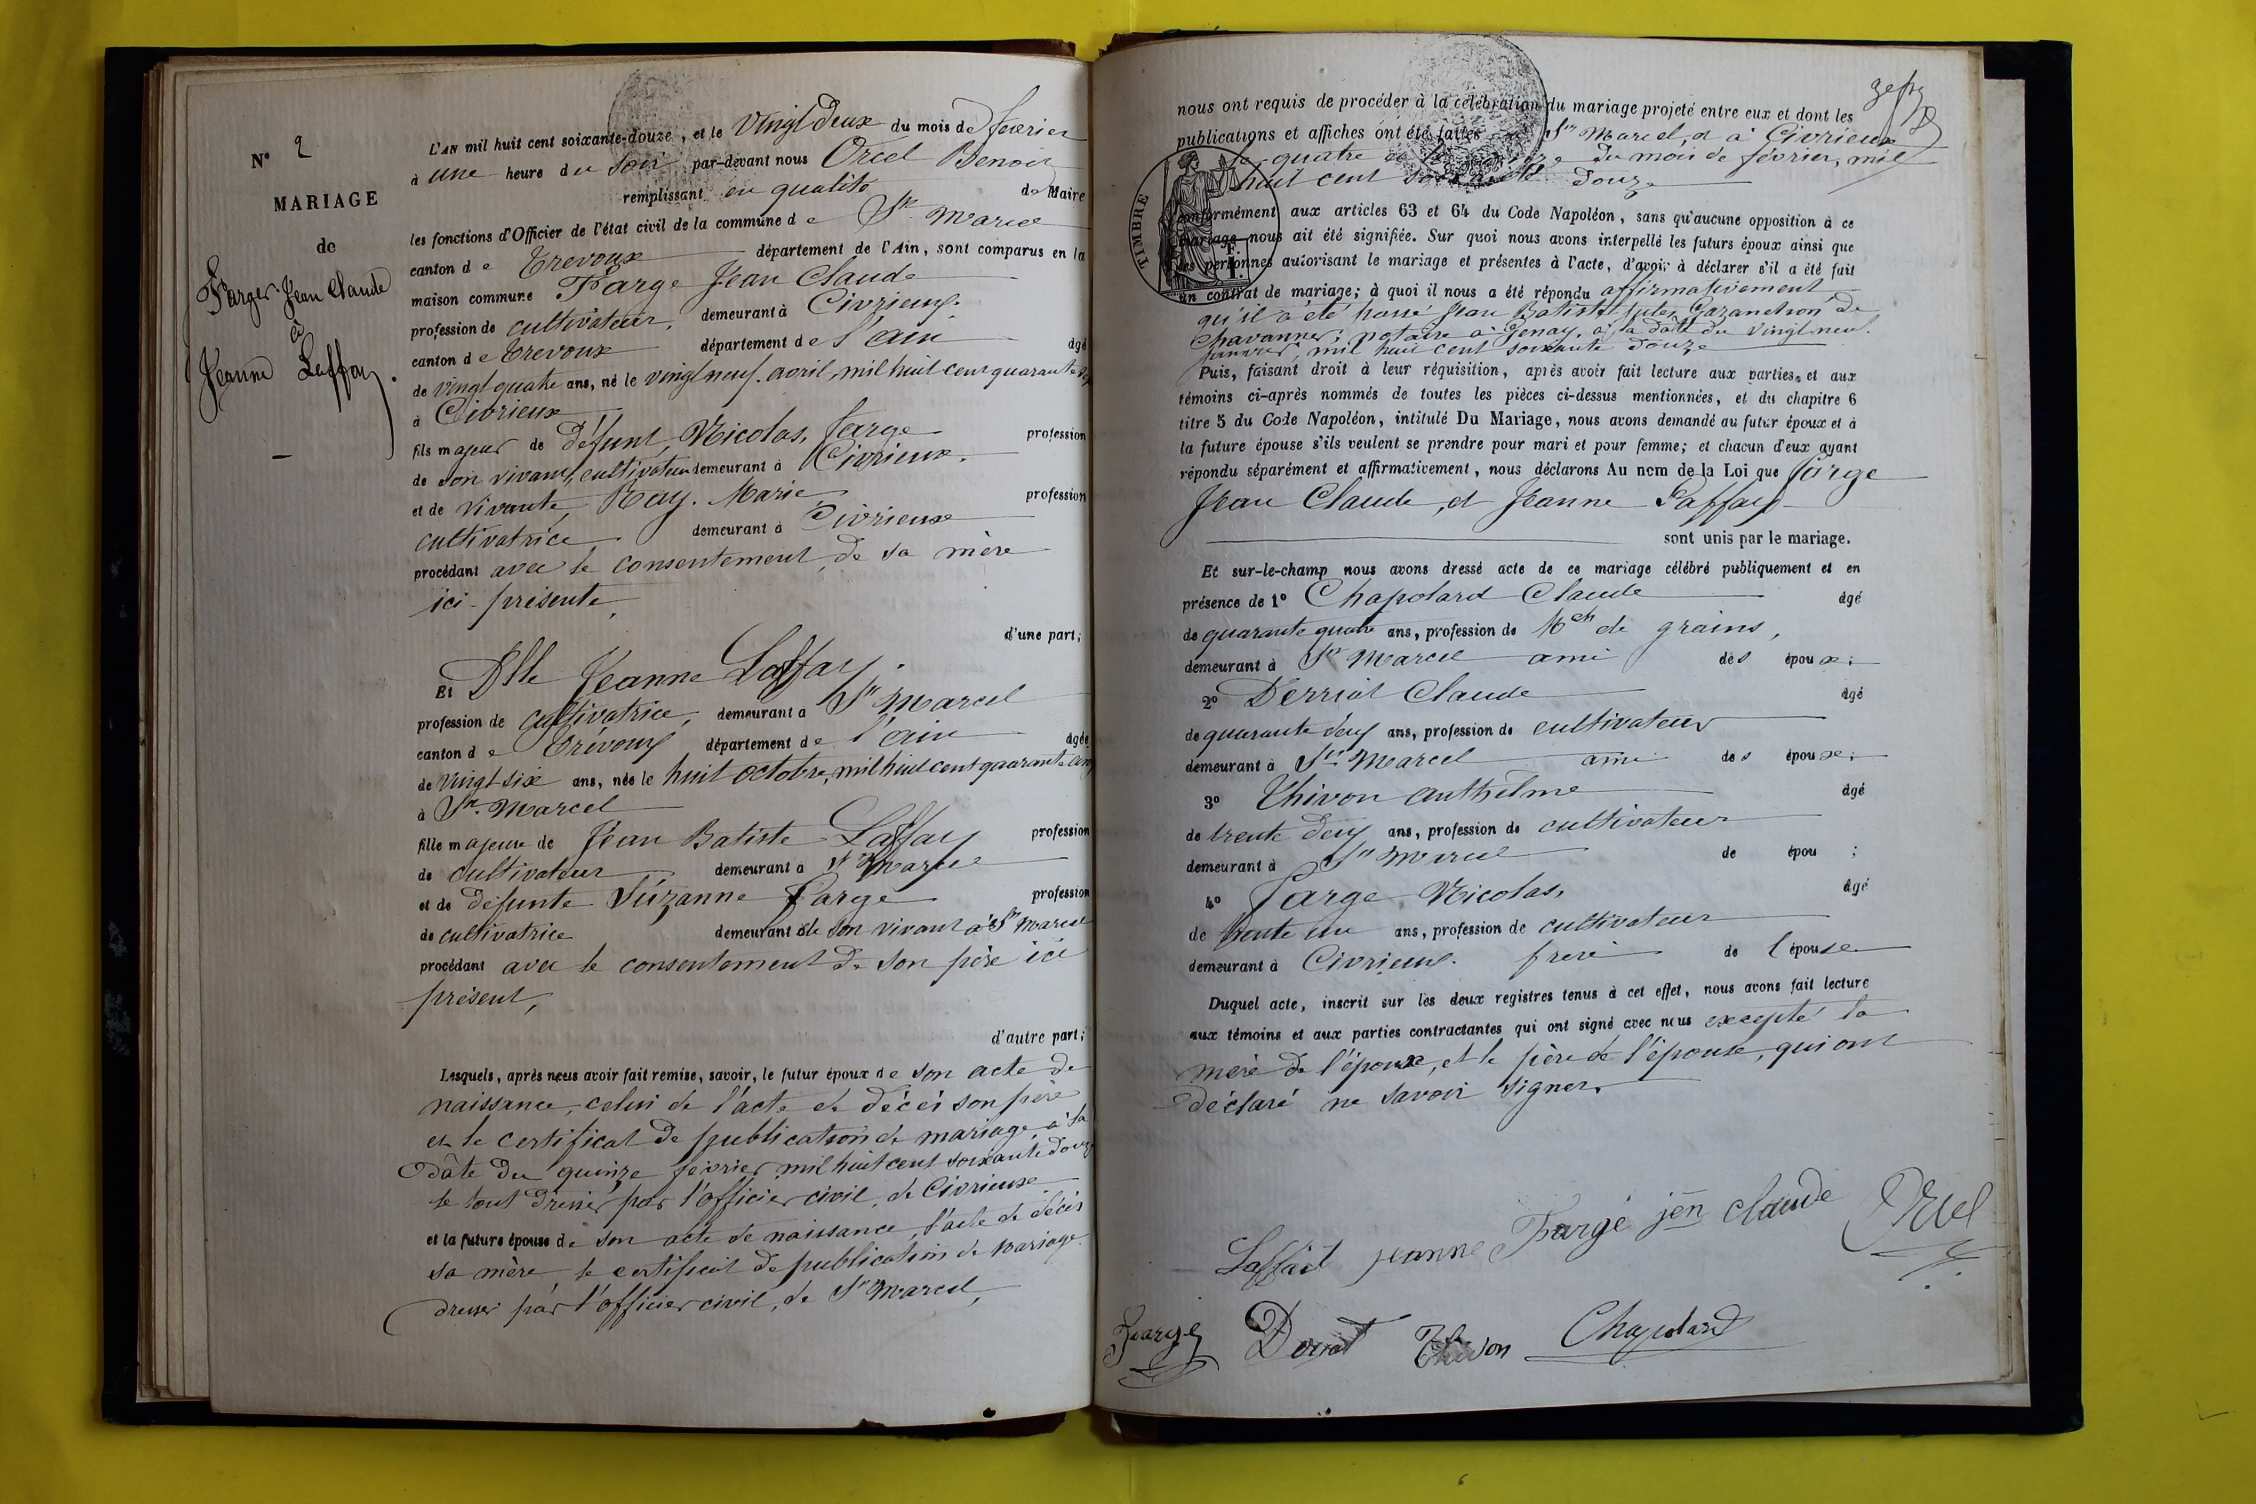 N° 2
MARIAGE
de
Farge Jean Claude
et
Jeanne Laffay
L'AN mil huit cent soixante-douze, et le vingt deux du mois de février
à une heure du soir par-devant nous Orcel Benoit
remplissant en qualité de Maire
les fonctions d'Officier de l'état civil de la commune de St Marcel
canton de Trevoux département de l'Ain, sont comparus en la
maison commune Farge Jean Claude
profession de cultivateur, demeurant à Civrieux.
canton de Trevoux département de l'ain âgé
de vingt quatre ans, né le vingt neuf avril, mil huit cent quarante
à Civrieux
fils majeur de défunt, Nicolas, farge profession
de son vivant, cultivateur demeurant à Civrieux.
et de vivante, Ray. Marie profession
cultivatrice demeurant à Civrieux
procédant avec le consentement, de sa mère
ici présente,
d'une part;
Et Dlle Jeanne Laffay.
profession de cultivatrice, demeurant à St Marcel
canton de Trévoux département de l'ain âgée
de vingt six ans, née le huit octobre, mil huit cent quarante cinq
à St. Marcel
fille majeure de Jean Batiste Laffay profession
de cultivateur demeurant à St Marcel
et de défunte Suzanne Farge profession
de cultivatrice demeurant de son vivant à St Marcel
procédant avec le consentement de son père ici
présent,
d'autre part;
Lesquels, après nous avoir fait remise, savoir, le futur époux de son acte de
naissance, celui de l'acte de décès son père
et le certificat de publication de mariage à la
date du quinze février mil huit cent soixante douze
le tout dressé par l'officier civil, de Civrieux
et la future épouse de son acte de naissance, l'acte de décès
sa mère, le certificat de publication de mariage
dresser par l'officier civil, de St Marcel,
nous ont requis de procéder à la célébration du mariage projeté entre eux et dont les
publications et affiches ont été faites St Marcel, et à Civrieux
quatre du mois de février, mil
huit cent soixante douze
TIMBRE
conformément aux articles 63 et 64 du Code Napoléon, sans qu'aucune opposition à ce
mariage nous ait été signifiée. Sur quoi nous avons interpellé les futurs époux ainsi que
les personnes autorisant le mariage et présentes à l'acte, d'avoir à déclarer s'il a été fait
un contrat de mariage; à quoi il nous a été répondu affirmativement
qu'il a été passé Jean Batiste de
Chavannes, notaire à Genay, à la date du vingt neuf
janvier, mil huit cent soixante douze
Puis, faisant droit à leur réquisition, après avoir fait lecture aux parties, et aux
témoins ci-après nommés de toutes les pièces ci-dessus mentionnées, et du chapitre 6
titre 5 du Code Napoléon, intitulé Du Mariage, nous avons demandé au futur époux et à
la future épouse s'ils veulent se prendre pour mari et pour femme; et chacun d'eux ayant
répondu séparément et affirmativement, nous déclarons Au nom de la Loi que farge
Jean Claude, et Jeanne Laffay
sont unis par le mariage.
Et sur-le-champ nous avons dressé acte de ce mariage célébré publiquement et en
présence de 1° Chapolard Claude âgé
de quarante quatre ans, profession de Mch de grains,
demeurant à St Marcel ami des époux;
2° Derriat Claude âgé
de quarante deux ans, profession de cultivateur
demeurant à St Marcel ami des époux;
3° Thivon anthelme âgé
de trente deux ans, profession de cultivateur
demeurant à St Marcel de épou ;
4° Farge, Nicolas, âgé
de trente un ans, profession de cultivateur
demeurant à Civrieux. frere de l'épouse
Duquel acte, inscrit sur les deux registres tenus à cet effet, nous avons fait lecture
aux témoins et aux parties contractantes qui ont signé avec nous excepté la
mère de l'époux, et le père de l'épouse, qui ont
déclaré ne savoir signer.
Laffait jeanne Fargé jën claude Orcel
Farge Derriat Thivon Chapolard